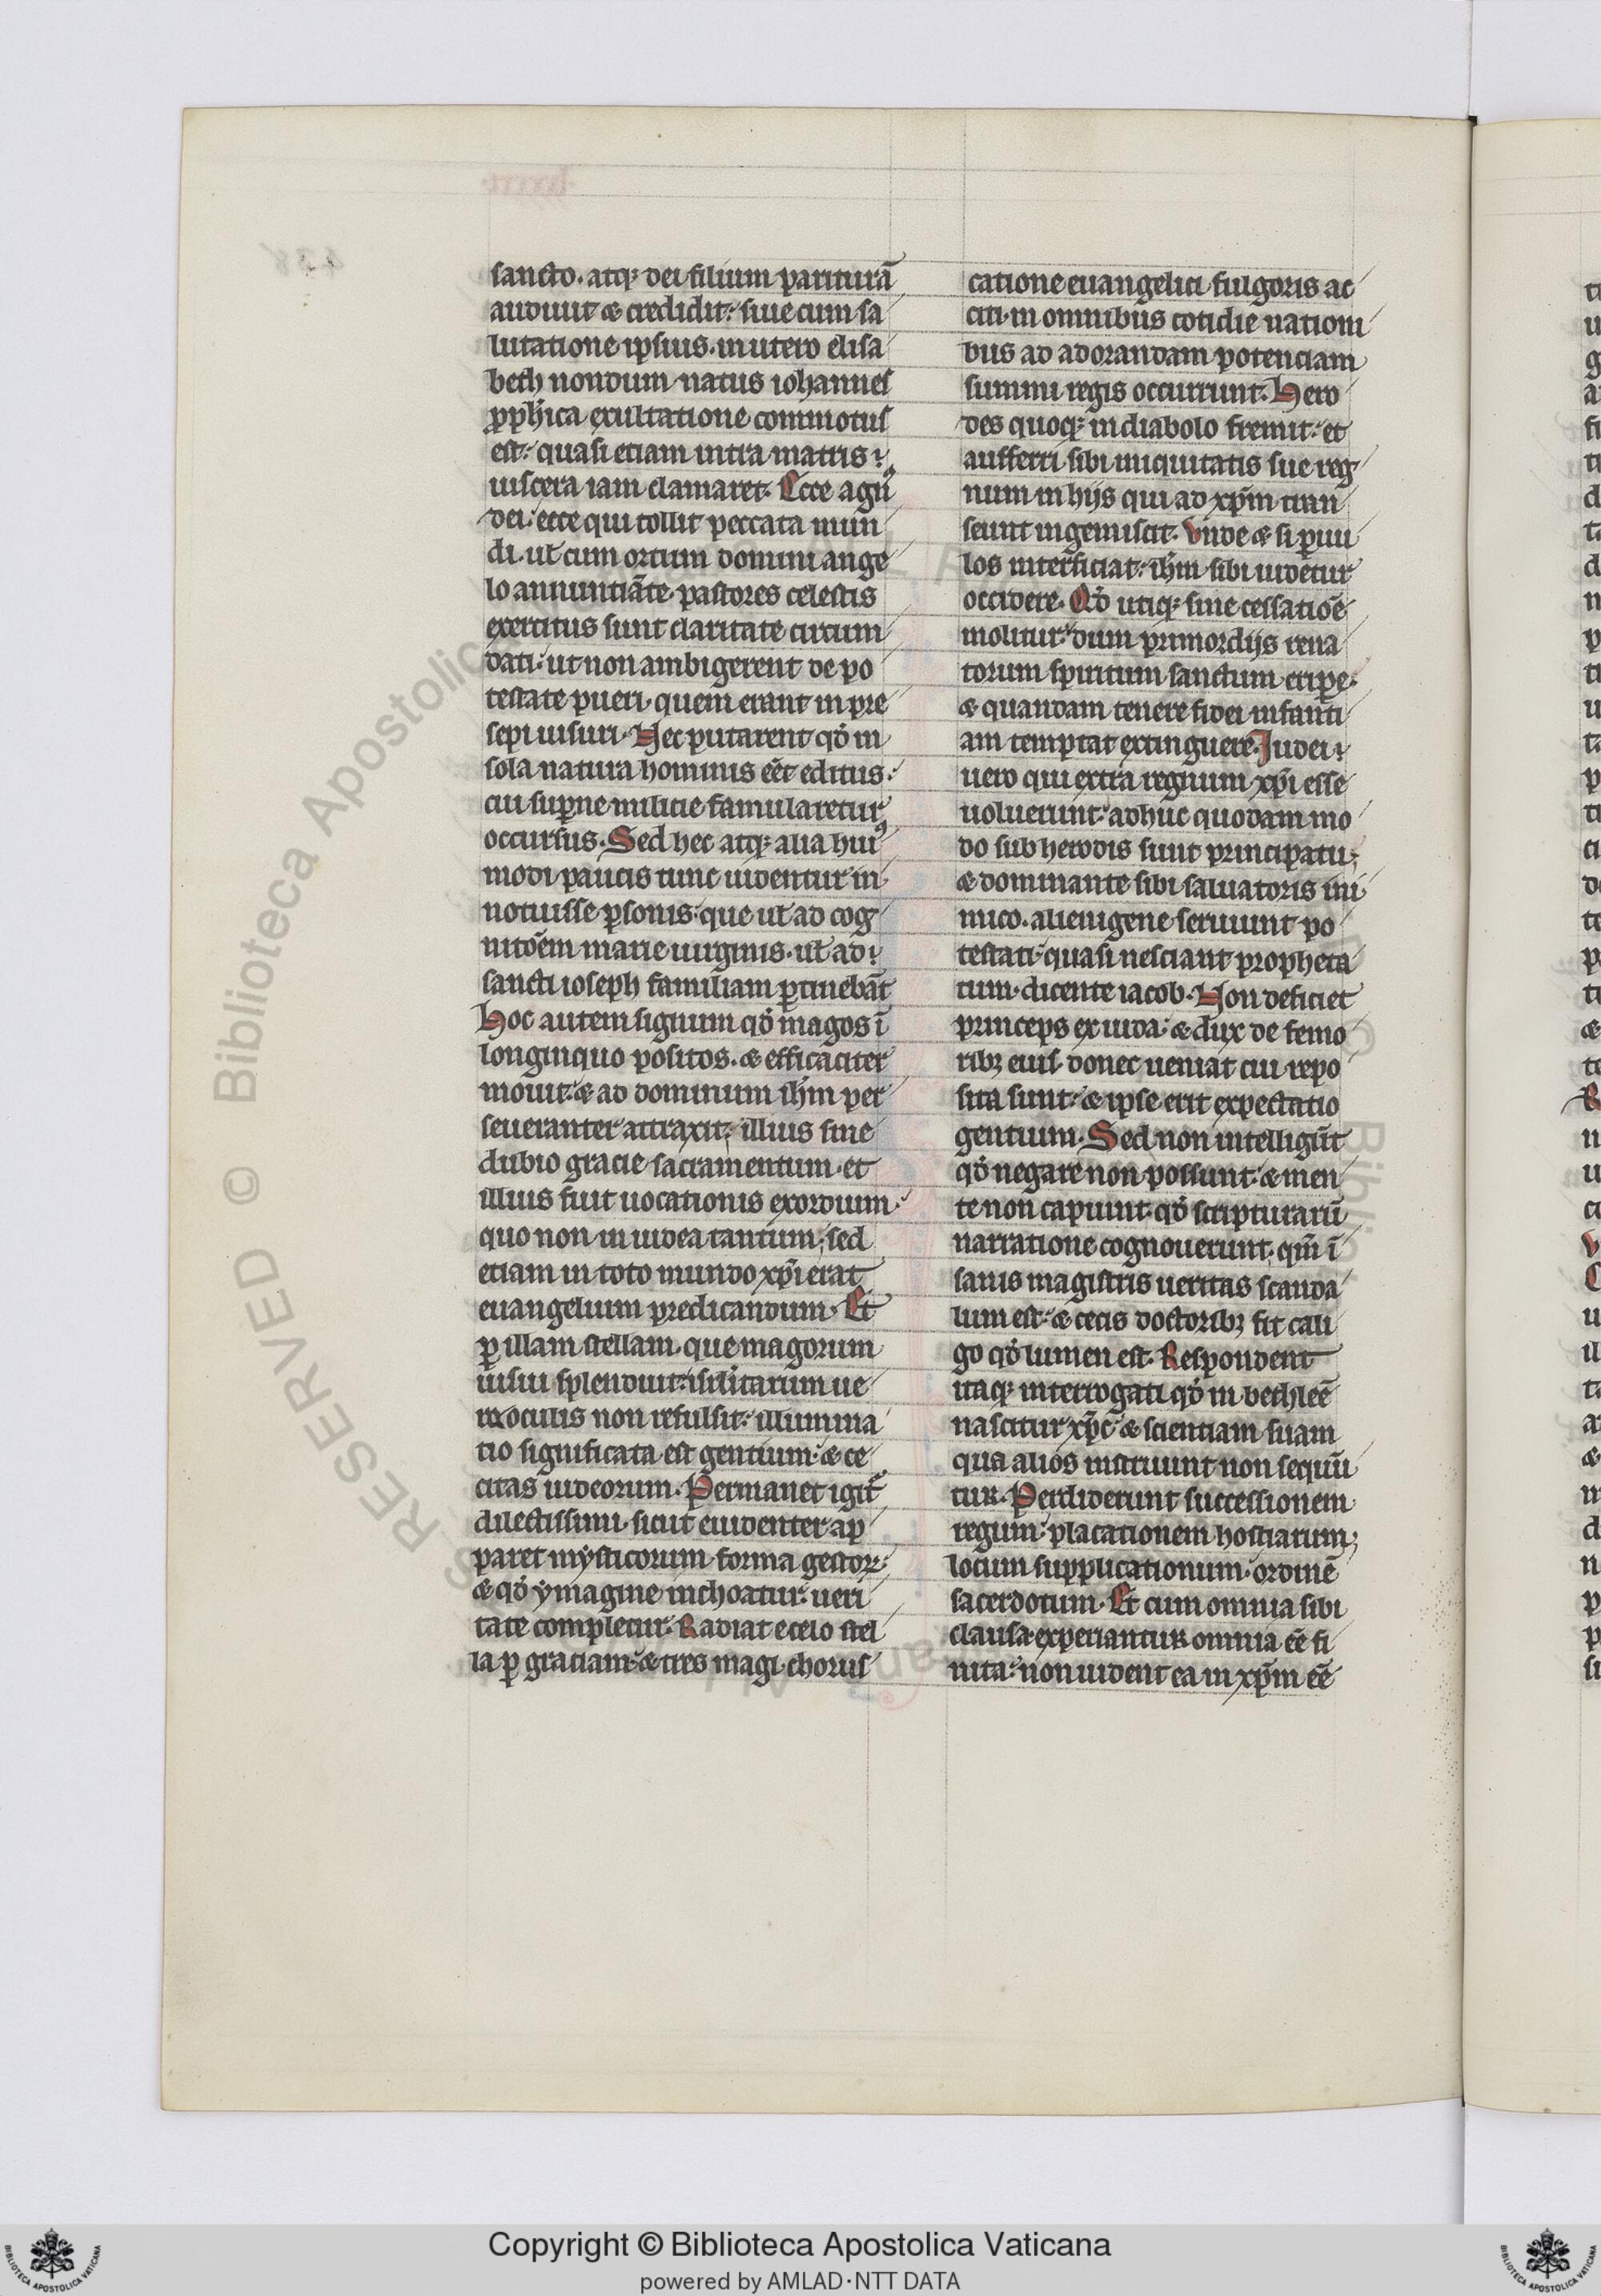 sancto. atq; dei filium pariturā
audiuit & credidit: siue cum sa
lutatione ipsius. in utero elisa
beth nondum natus iohannes
ꝓpħica exultatione commotus
est: quasi etiam intra matris
uiscera iam clamaret. Ecce agnꝰ
dei: ecce qui tollit peccata mun
di. ut̄ cum ortum domini ange
lo annuntiāte pastores celestis
exercitus sunt claritate circum
dati: ut non ambigerent de po
testate pueri. quem erant in pre
sepi uisuri. Nec putarent qd̓ in
sola natura hominis eēt editus:
cui suꝑne milicie famularetur
occursus. Sed hec atq; alia huiꝰ
modi paucis tunc uidentur in
notuisse ꝑsonis. que ut̄ ad cog
nitōem marie uirginis. ut̄ ad
sancti ioseph familiam ꝑtinebāt
Hoc autem signum qd̓ magos ī
longinquo positos. & efficaciter
mouit: & ad dominum ih̄m per
seueranter attraxit; illius sine
dubio gracie sacramentum et
illius fuit uocationis exordium.
quo non in iudea tantum; sed
etiam in toto mundo xp̄i erat
euangelium predicandum. Et
ꝑ illam stellam. que magorum
uisui splenduit: isrl̓itarum ue
ro oculis non refulsit: illumina
tio significata est gentium: & ce
citas iudeorum. Permanet igit᷑
dilectissimi. sicut euidenter ap
paret mysticorum forma gestoꝝ:
& qd̓ ymagine inchoatur: ueri
tate completur. Radiat e celo stel
la ꝑ graciam: & tres magi. chorus
catione euangelici fulgoris ac
citi. in omnibus cotidie nationi
bus ad adorandam potenciam
summi regis occurrunt. Hero
des quoq; in diabolo fremit: et
aufferri sibi iniquitatis sue reg
num in hijs qui ad xp̄m tran
seunt ingemiscit. Vnde & si ꝑuu
los interficiat: ih̄m sibi uidetur
occidere. Qd̓ utiq; sine cessatiōe
molitur: dum primordijs rena
torum spiritum sanctum eripe.
& quandam tenere fidei infanti
am temptat extinguere. Judei
uero qui extra regnum xp̄i esse
uoluerunt: adhuc quodam mo
do sub herodis sunt principatu;
& dominante sibi saluatoris ini
mico. alienigene seruiunt po
testati: quasi nesciant propheta
tum. dicente iacob. Non deficiet
princeps ex iuda: & dux de femo
ribꝫ eius donec ueniat cui repo
sita sunt: & ipse erit expectatio
gentium. Sed non intelligūt
qd̓ negare non possunt: & men
te non capiunt. qd̓ scripturarū
narratione cognouerunt. qm̄ ī
sanis magistris ueritas scanda
lum est: & cecis doctoribꝫ fit cali
go qd̓ lumen est. Respondent
itaq; interrogati qd̓ in bethleē
nascitur xp̄c: & scientiam suam
qua alios instruunt non sequū
tur. Perdiderunt successionem
regum: placationem hostiarum;
locum supplicationum. ordinē
sacerdotum. Et cum omnia sibi
clausa experiantur omnia eē fi
nita: non uident ea in xp̄m eē
RESERVED © Biblioteca Apostolica
Copyright © Biblioteca Apostolica Vaticana
powered by AMLAD·NTT DATA